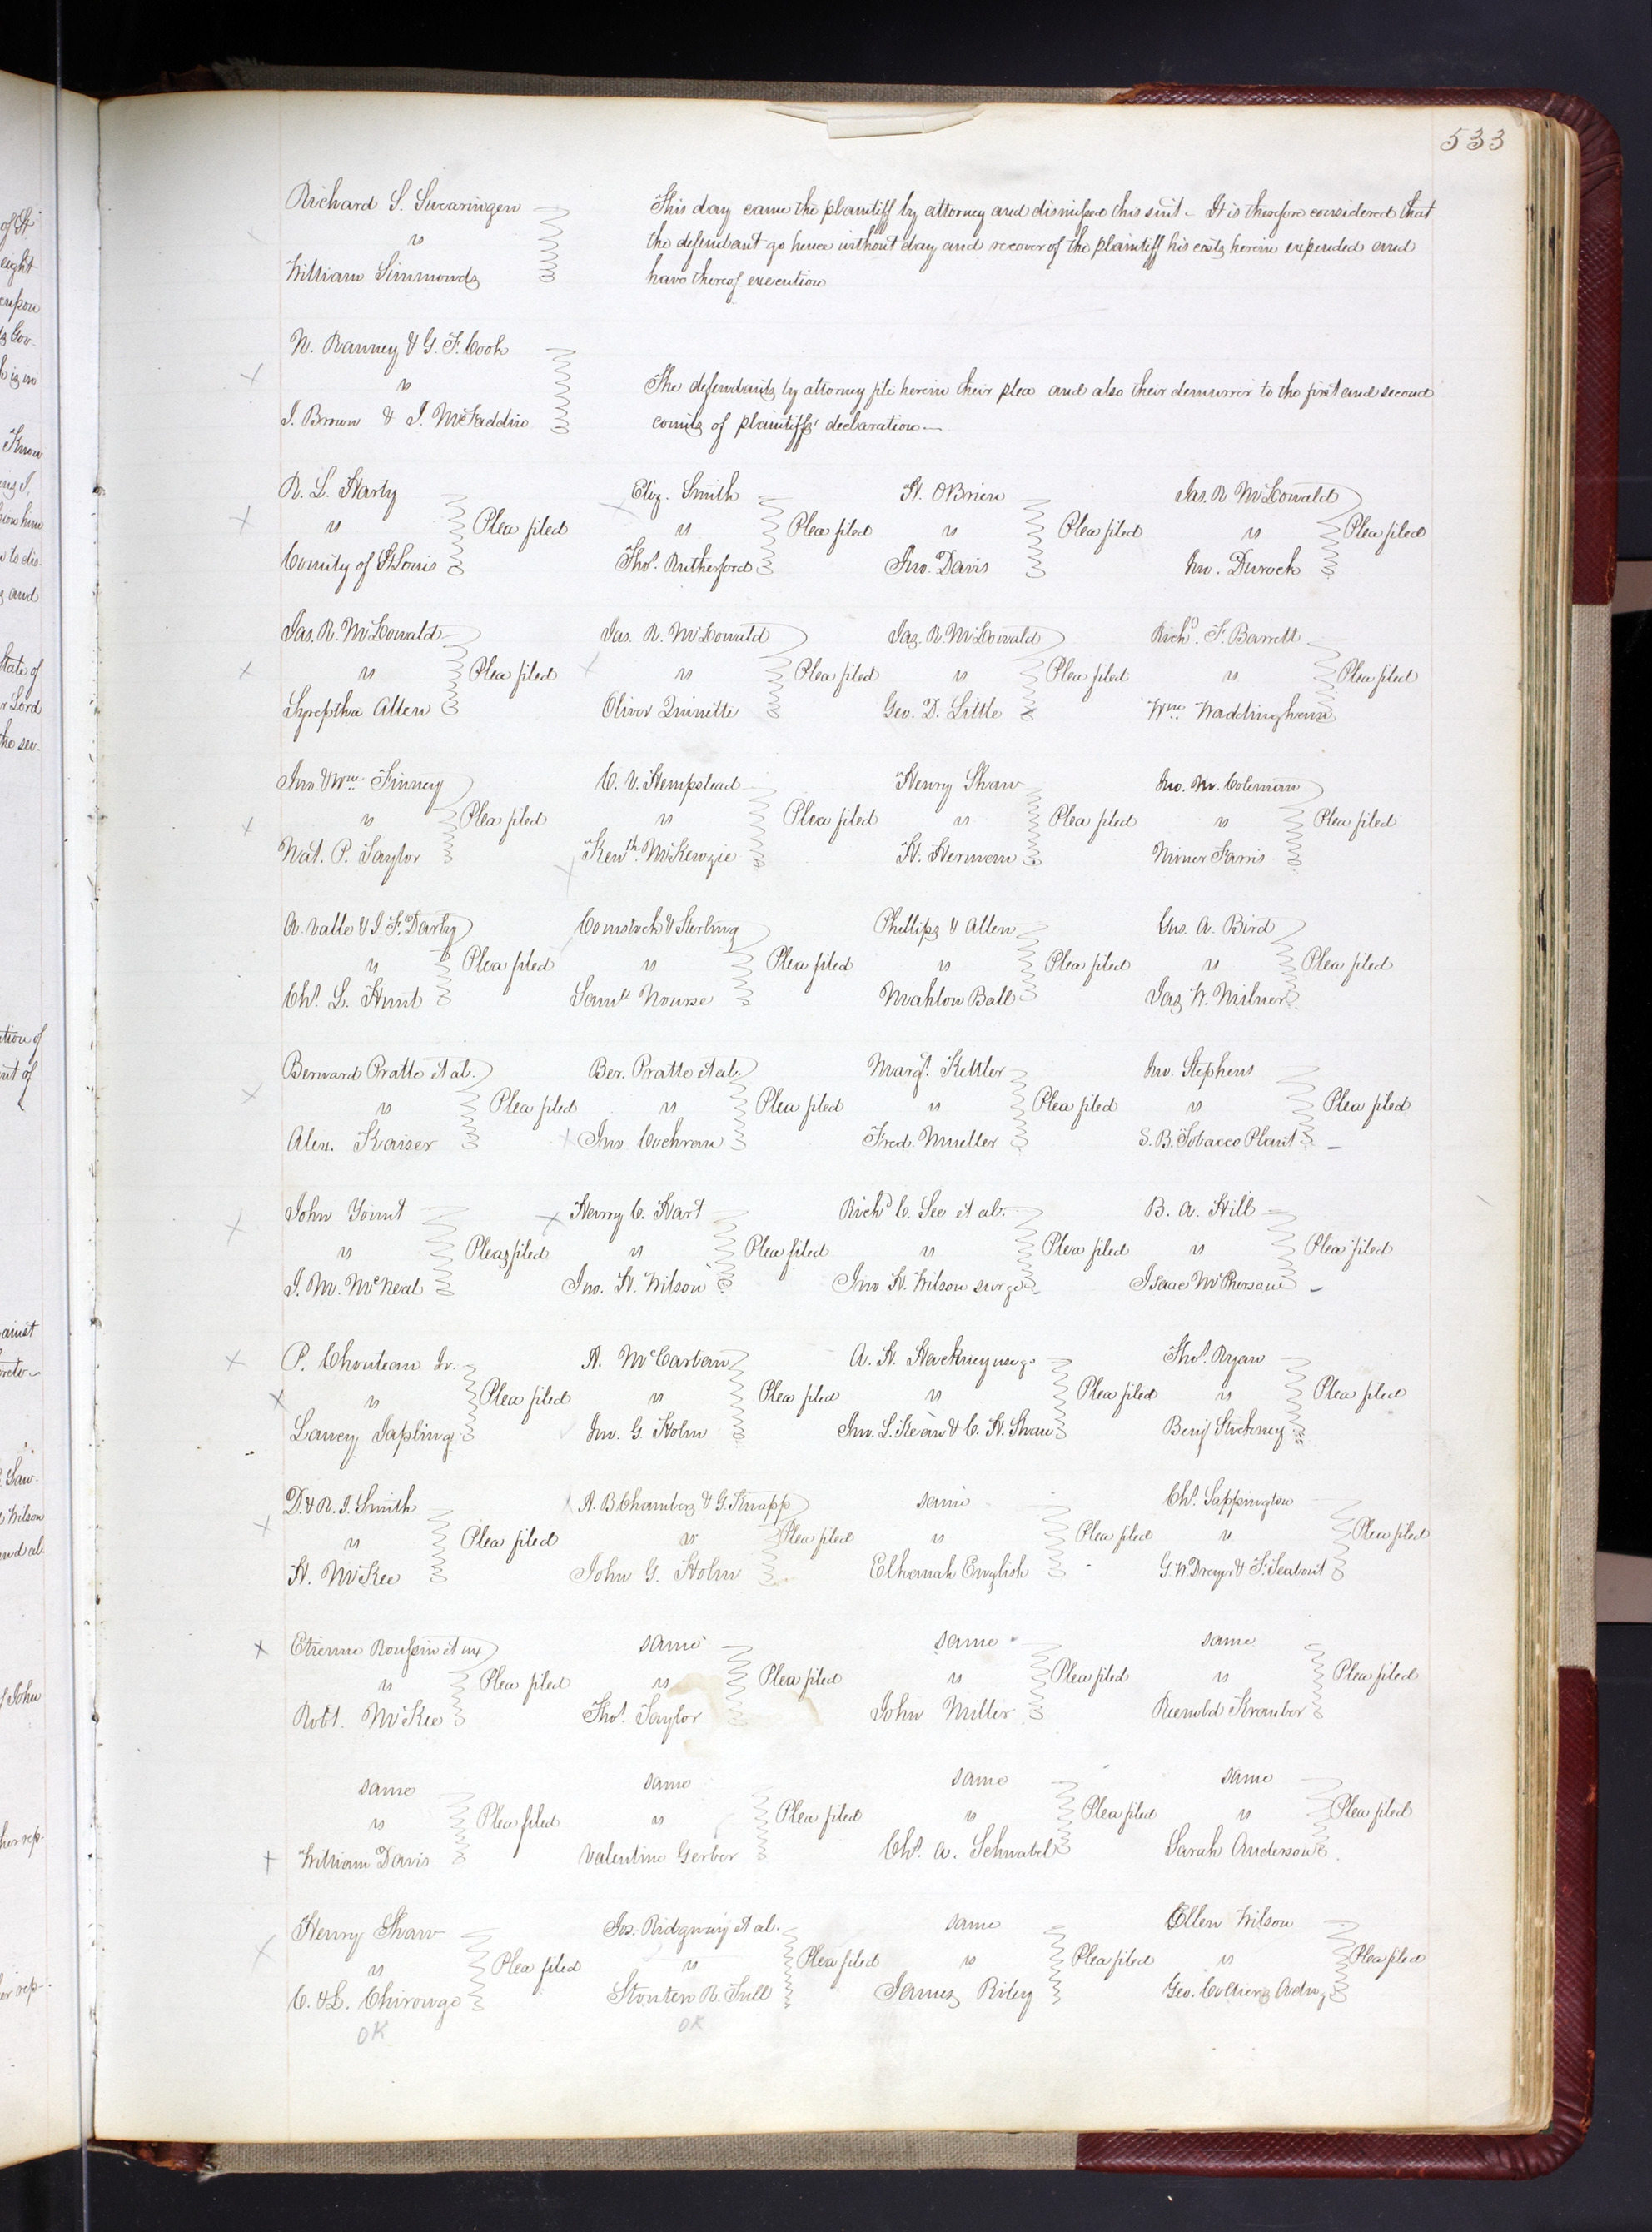 533
Richard S. Swearingen
vs
William Simmonds
This day came the plaintiff by attorney and dismissed this suit – It is therefore considered that
the defendant go hence without day and recover of the plaintiff his costs herein expended and
have thereof execution
N. Ranney & G. F. Cook
vs
J. Brown & J. McFaddin
The defendants by attorney file herein their plea and also their demurrer to the first and second
counts of plaintiffs' declaration—
R. L. Harty
vs Plea filed
County of St Louis
Eliz. Smith
vs Plea filed
Thos. Rutherford
H. OBrien
vs Plea filed
Jno. Davis
Jas. R McDonald
vs Plea filed
Jno. Durock
Jas. R. McDonald
vs Plea filed
Allen
Jas. R. McDonald
vs Plea filed
Oliver Quinette
Jas. R McDonald
vs Plea filed
Geo. D. Little
Richd. F. Barrett
vs Plea filed
Wm. Waddingham
Jno. & Wm. Finney
vs Plea filed
Nat. P. Taylor
C. V. Hempstead
vs Plea filed
Kenth. McKenzie
Henry Shaw
vs Plea filed
H. Herman
Jno. M. Coleman
vs Plea filed
Farris
A. Valle & J. F. Darby
vs Plea filed
Chs. L. Hunt
Comstock & Sterling
vs Plea filed
Saml. Nourse
Phillips & Allen
vs Plea filed
Mahlon Ball
Gus. A. Bird
vs Plea filed
Jas W. Milner
Bernard Pratte et al.
vs Plea filed
Alex. Kaiser
Ber. Pratte et al.
vs Plea filed
Jno Cochran
Margt. Kettler
vs Plea filed
Fred. Mueller
Jno. Stephens
vs Plea filed
S. B. Tobacco Plant –
John Yount
vs Pleas filed
J. M. McNeal
Henry C. Hart
vs Plea filed
Jno. H. Wilson
Richd C. Lee et al.
vs Plea filed
Jno H. Wilson survg.
B. A. Hill
vs Plea filed
Isaac McPherson –
P. Chouteau Jr.
vs Plea filed
Japling
A. McCartan
vs Plea filed
Jno. G. Holm
A. H. Hackney use &c
vs Plea filed
Jno. L. Kean & C. H. Shaw
Thos. Ryan
vs Plea filed
Benj Stickney
D. & R. J. Smith
vs Plea filed
H. McKee
A. B Chambers & G. Knapp
vs Plea filed
John G. Holm
same
vs Plea filed
Elkanah English
Chs. Sappington
vs Plea filed
G. W. Dreyer & F. Seabout
Etienne Roussin et ux
vs Plea filed
Robt. McKee
same
vs Plea filed
Thos. Taylor
same
vs Plea filed
John Miller
same
vs Plea filed
Reenold Kramber
same
vs Plea filed
William Davis
same
vs Plea filed
Valentine Gerber
same
vs Plea filed
Chs. A. Schnabel
same
vs Plea filed
Sarah Anderson
Henry Shaw
vs Plea filed
C. & L. Chirouge
OK
Jos. Ridgway et al.
vs Plea filed
Stouten R. Tull
OK
same
vs Plea filed
James Riley
Ellen Wilson
vs Plea filed
Geo. Colliers Adm.